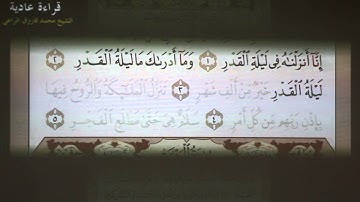 قراءة عادية
الشيخ محمد فاروق الراعي
إِنَّا أَنزَلْنَٰهُ فِى لَيْلَةِ ٱلْقَدْرِ ١ وَمَآ أَدْرَىٰكَ مَا لَيْلَةُ ٱلْقَدْرِ ٢
لَيْلَةُ ٱلْقَدْرِ خَيْرٌ مِّنْ أَلْفِ شَهْرٍ ٣ تَنَزَّلُ ٱلْمَلَٰٓئِكَةُ وَٱلرُّوحُ فِيهَا
بِإِذْنِ رَبِّهِم مِّن كُلِّ أَمْرٍ ٤ سَلَٰمٌ هِىَ حَتَّىٰ مَطْلَعِ ٱلْفَجْرِ ٥